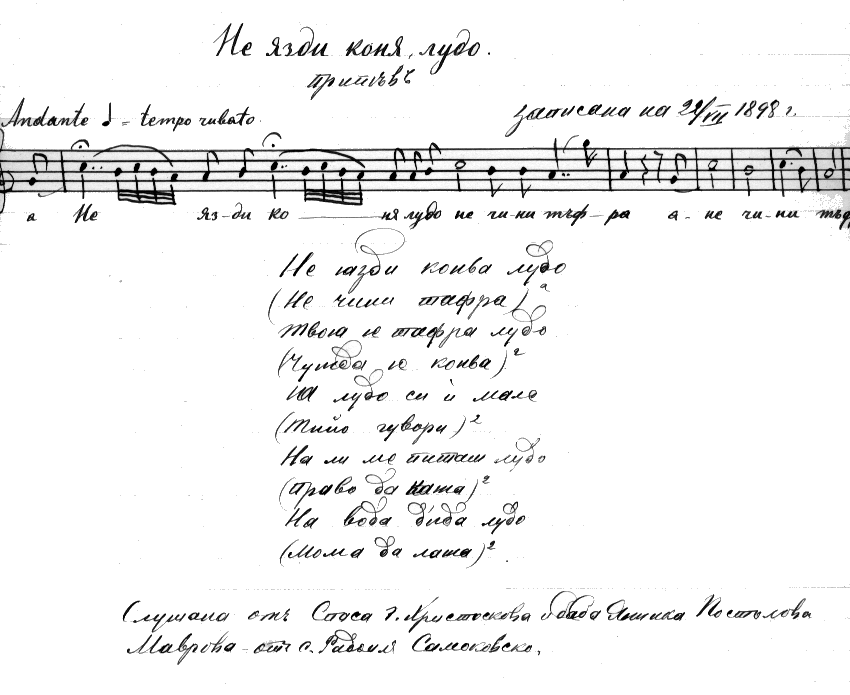 Не язди коня, лудо.
припѣвъ
Andante = tempo rubato
записана на 22/VII 1898 г.
а Не яз-ди ко ня лудо не чи-ни тъф-ра а-не чи-ни тъф
Не язди конва лудо
(Не чини тафра)²
Твою ю тафра лудо
(Чужда ю конва)²
На лудо си ѝ мале
(Тийо гувори)²
На ли ме питаш лудо
(право да кажа)²
На вода дида лудо
(Мома да лажа)²
Слушана отъ Спаса Г. Христоскова и баба Яника Постолова
Маврова - отъ с. Самоковско.